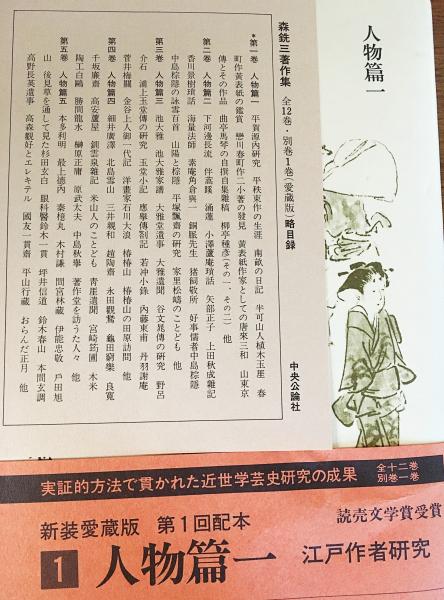 人物篇一
森銑三著作集 全12巻・別巻1巻(愛蔵版)略目録
*第一巻 人物篇一 平賀源内研究 平秩東作の生涯 南畝の日記 半可山人植木玉厓 春
町作黄表紙の鑑賞 戀川春町作二小著の發見 黄表紙作家としての唐來三和 山東京
傳とその作品 曲亭馬琴の自撰自集雜稿 柳亭種彦(その一、その二) 他
第二巻 人物篇二 下河邊長流 伴蒿蹊 涌蓮 小澤蘆庵瑣話 矢部正子 上田秋成雜記
香川景樹瑣話 海量法師 素庵角倉與一 銅脈先生 猪飼敬所 好事儒者中島棕隠
中島棕隠の詠雪百首 山陽と棕隠 平塚飄齋の研究 家里松嶹のことども 他
第三巻 人物篇三 池大雅 池大雅家譜 大雅堂遺事 大雅遺聞 谷文晁傳の研究 野呂
介石 浦上玉堂傳の研究 玉堂小記 應擧傳箚記 若冲小錄 内藤東甫 丹羽謝庵
菅井梅關 金谷上人御一代記 洋畫家石川大浪 椿椿山 椿椿山の田原訪問 他
第四巻 人物篇四 細井廣澤 北島雪山 三井親和 趙陶齋 永田觀鵞 龜田窮樂 良寛
千坂廉齋 高安蘆屋 釧雲泉雜記 米山人のことども 青崖遺聞 宮崎筠圃 木米
陶工白鷗 勝間龍水 榊原正庸 原武太夫 中島秋擧 著作堂を訪うた人々 他
第五巻 人物篇五 本多利明 最上德内 秦檍丸 木村謙 間宮林藏 伊能忠敬 戸田旭
山 後見草を通して見た杉田玄白 眼科醫鈴木一貫 坪井信道 鈴木春山 本間玄調
高野長英遺事 高森觀好とエレキテル 國友一貫齋 平山行藏 おらんだ正月 他
中央公論社
実証的方法で貫かれた近世学芸史研究の成果
全十二巻
別巻一巻
新装愛蔵版 第1回配本
読売文学賞受賞
1 人物篇一 江戸作者研究